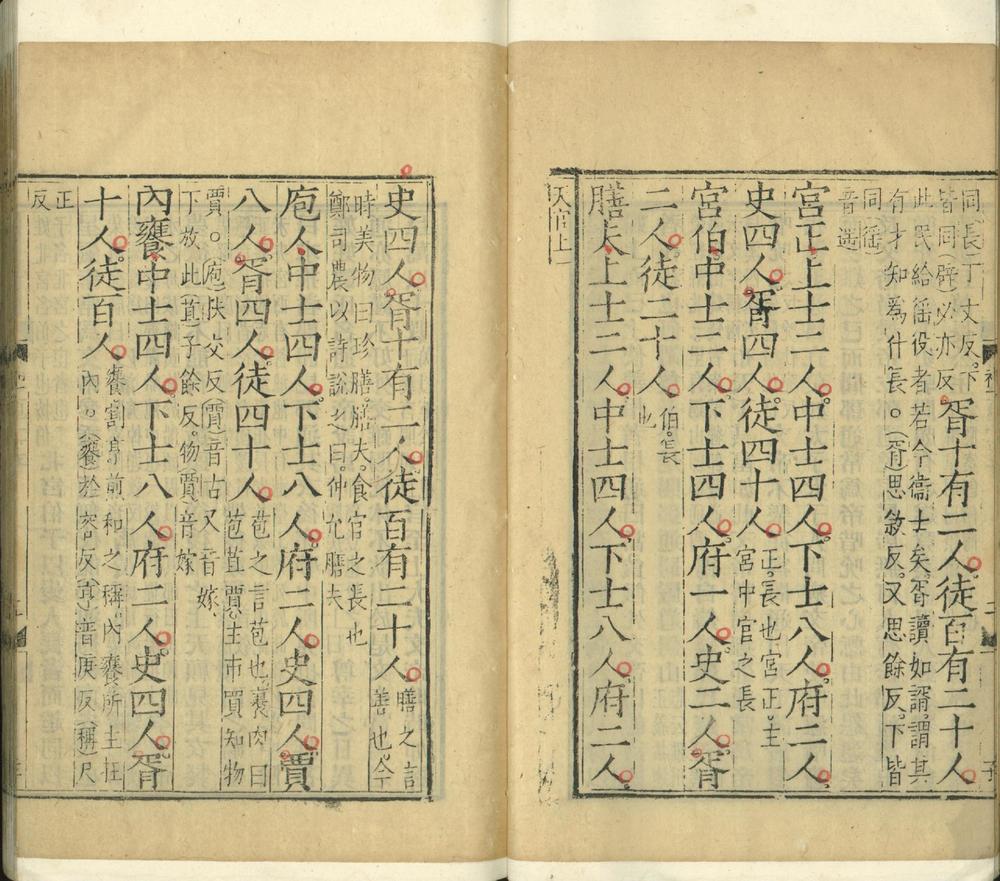 同(長)丁丈反。下
皆同(辟)必亦反
胥十有二人。徒百有二十人。
此民給徭役者若今衞士矣。胥讀如諝。謂其
有才知為什長。○(胥)思敘反。又思餘反。下皆
同(徭)
音遥
宮正上士二人。中士四人。下士八人。府二人。
史四人。胥四人。徒四十人。
正。長也宮正。主
宮中官之長
宮伯中士二人。下士四人。府一人。史二人。胥
二人。徒二十人
伯。長
也
膳夫上士二人。中士四人。下士八人。府二人。
天官上
史四人。胥十有二人。徒百有二十人。
膳之言
善也。今
時美物曰珍膳。膳夫。食官之長也
鄭司農以詩說之曰。仲允膳夫
庖人。中士四人。下士八人。府二人。史四人。賈
八人。胥四人。徒四十人。
苞之言苞也。裹肉曰
苞苴。賈。主市買知物
賈。○(庖)陜交反(賈)音古又音嫁、
下放此(苴)子餘反。物(賈)音嫁
內饔。中士四人。下士八人。府二人。史四人。胥
十人。徒百人。
饔割亨煎和之稱。內饔。所主在
內。○(饔)於容反(亨)普庚反(稱)尺
正
反